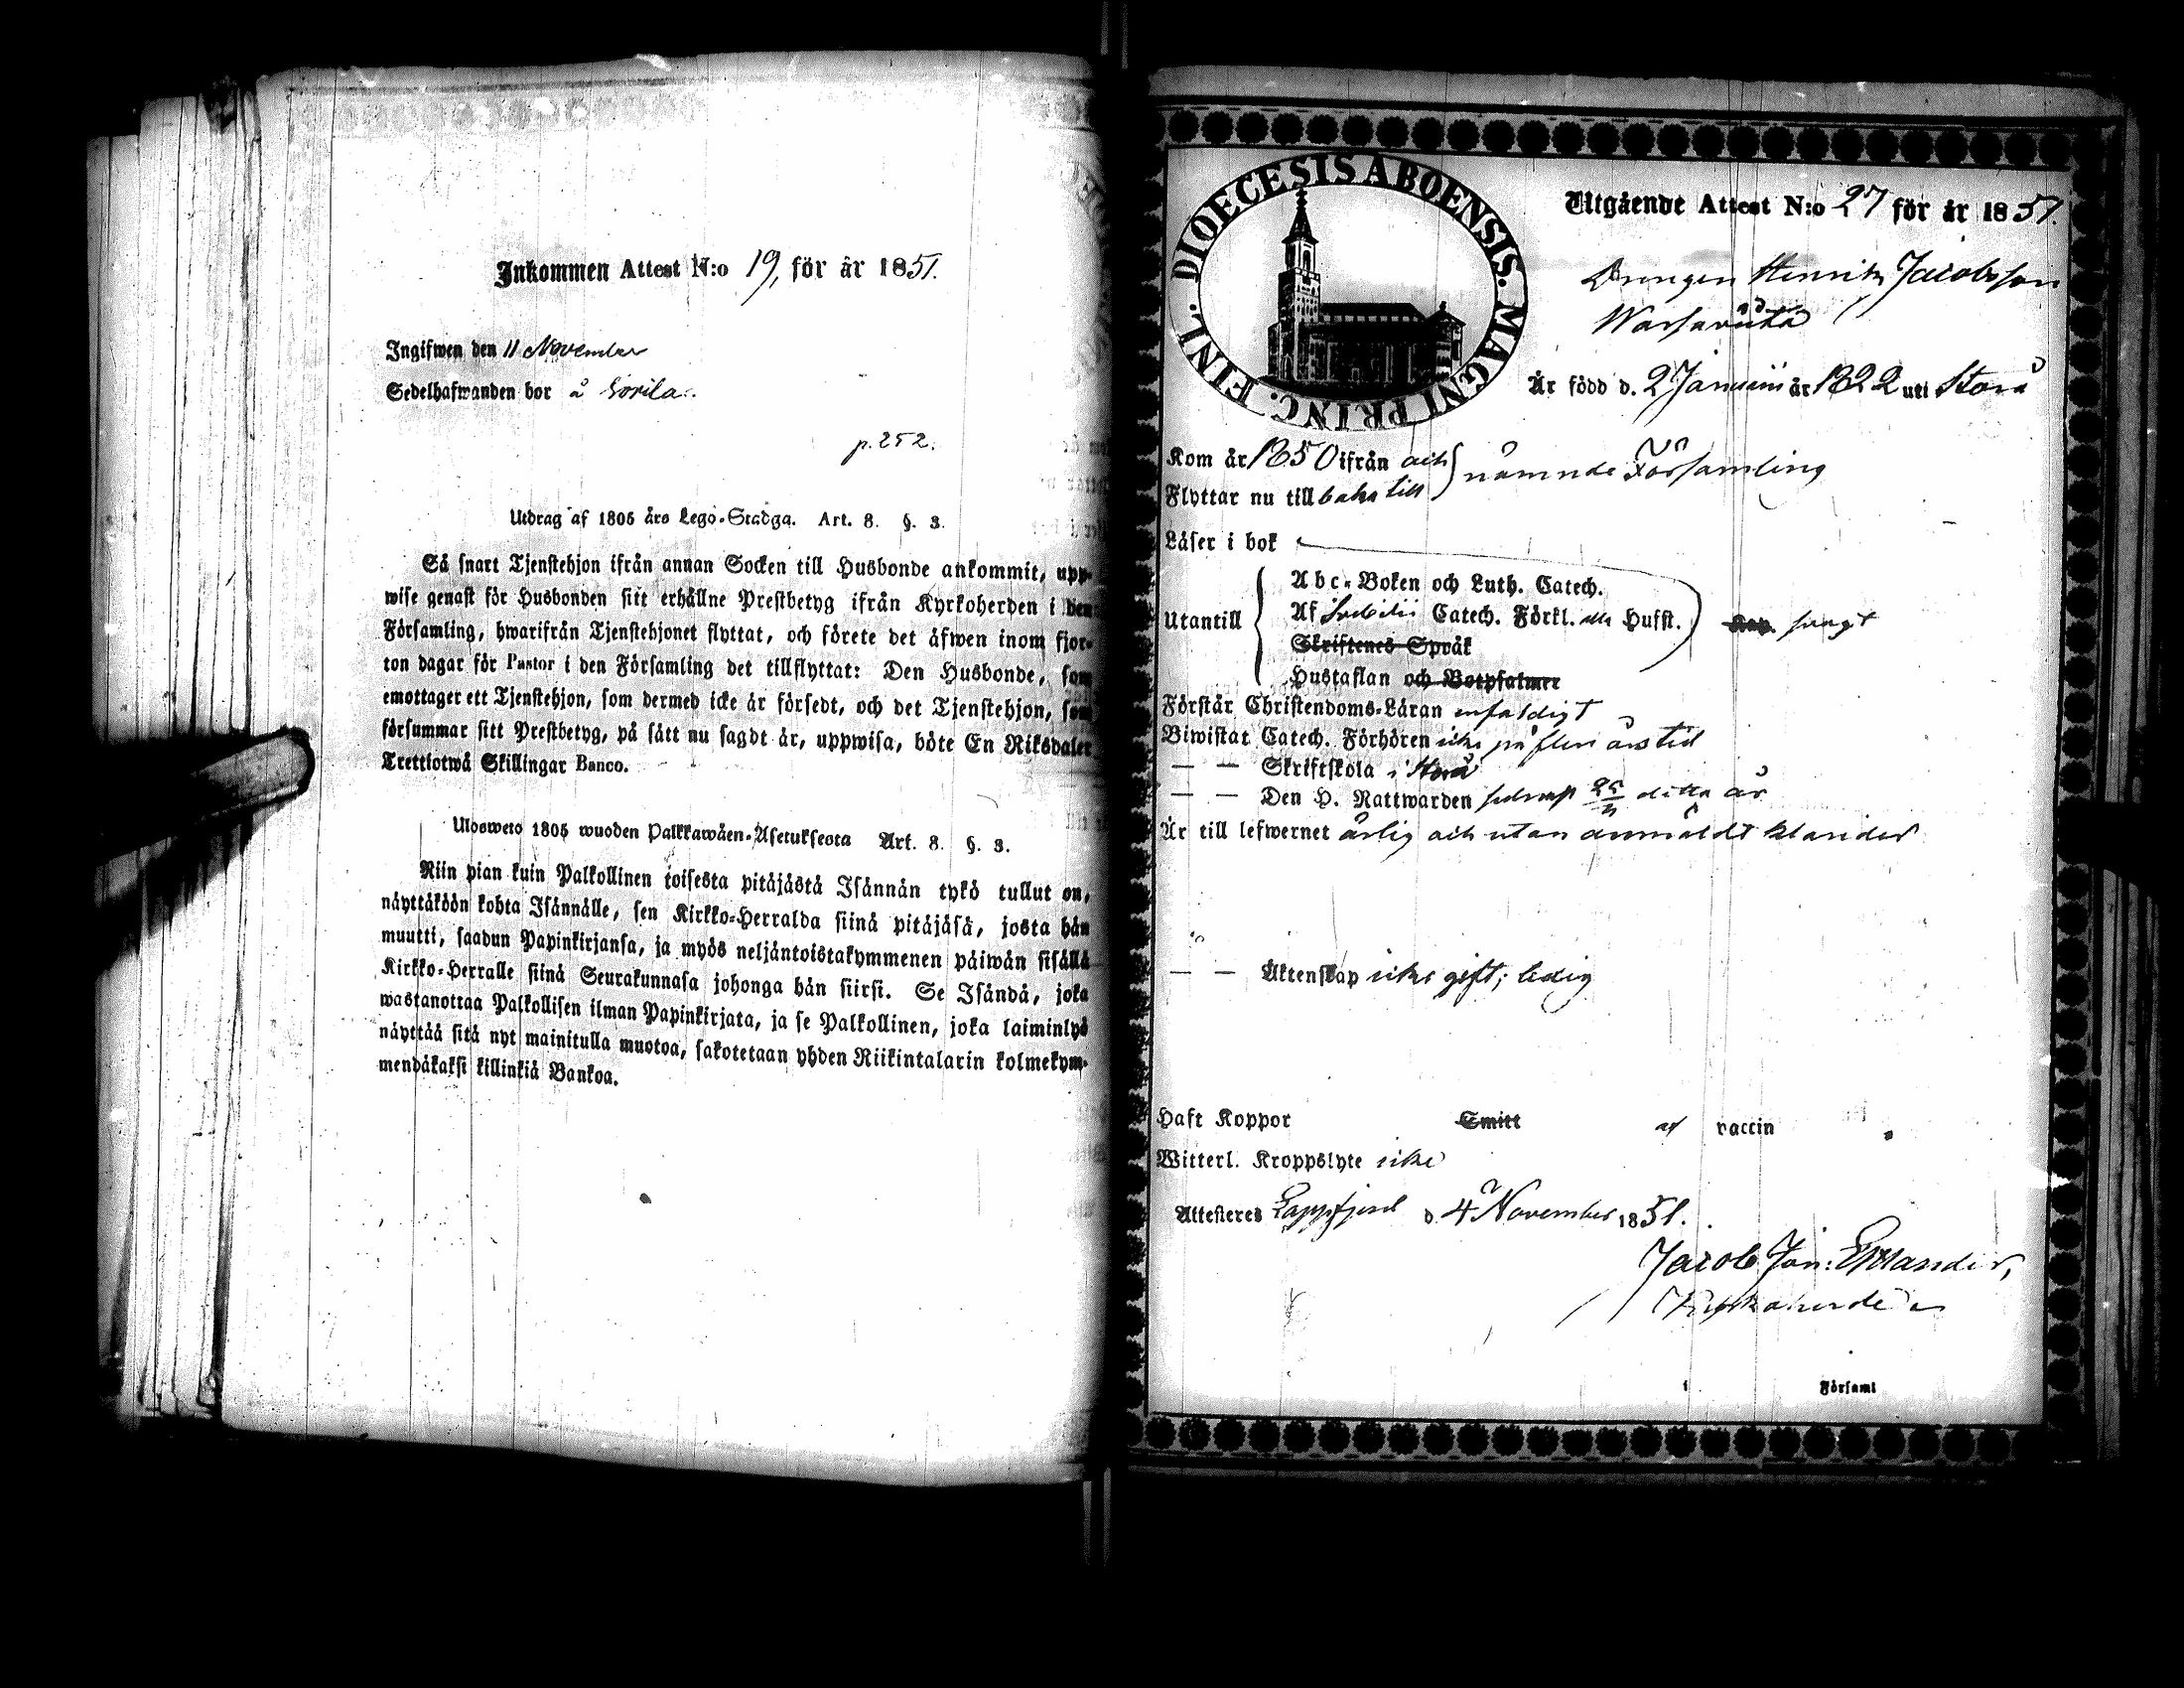 Inkommen Attest N:o 19, för år 1851.
Ingifwen den 11 November
Sedelhafwanden bor å
p. 252.
Utdrag af 1805 års Lego-Stadga. Art. 8. §. 3.
Så snart Tjenstehjon ifrån annan Socken till Husbonde ankommit, upp-
wise genast för Husbonden sitt erhållne Prestbetyg ifrån Kyrkoherden i den
Församling, hwarifrån Tjenstehjonet flyttat, och förete det äfwen inom fjor-
ton dagar för Pastor i den Församling det tillflyttat: Den Husbonde, som
emottager ett Tjenstehjon, som dermed icke är försedt, och det Tjenstehjon, som
försummar sitt Prestbetyg, på sätt nu sagdt är, uppwisa, böte En Riksdaler
Trettiotwå Skillingar Banco.
Ulosweto 1805 wuoden Palkkawäen-Asetuksesta Art. 8. §. 3.
Niin pian kuin Palkollinen toisesta pitäjästä Isännän tykö tullut on,
näyttäköön kohta Isännälle, sen Kirkko-Herralda siinä pitäjäsä, josta hän
muutti, saadun Papinkirjansa, ja myös neljäntoistakymmenen päiwän sisällä
Kirkko-Herralle siinä Seurakunnasa johonga hän siirsi. Se Isändä, joka
wastanottaa Palkollisen ilman Papinkirjata, ja se Palkollinen, joka laiminlyö
näyttää sitä nyt mainitulla muotoa, sakotetaan yhden Riikintalarin kolmekym-
mendäkaksi killinkiä Bankoa.
DIOECESIS ABOENSIS. MAGNI PRINC. FINL.
Utgående Attest N:o 27 för år 1851.
Drengen Henrik Jacobsson
Är född d. 2 Januarii år 1822 uti Storå
Kom år 1850 ifrån och } nämnde Församling
Flyttar nu till baka till
Läser i bok
Abc-Boken och Luth. Catech.
Utantill { Af Svebilii Catech. Förkl. Husst.
Skriftenes Språk
Hustaflan och Botpsalmer
Förstår Christendoms-Läran enfaldigt
Biwistat Catech. Förhören icke på flere års tid
— — Skriftskola i Storå
— — Den H. Nattwarden sednast detta år
Är till lefwernet ärlig och utan anmäldt klander
— — Äktenskap icke gift; ledig
Haft Koppor Smitt af vaccin
Witterl. Kroppslyte icke
Attesteres Lappfjerd d. 4 November 1851.
Jacob Joh: Estlander,
Kyrkoherde
i Församl